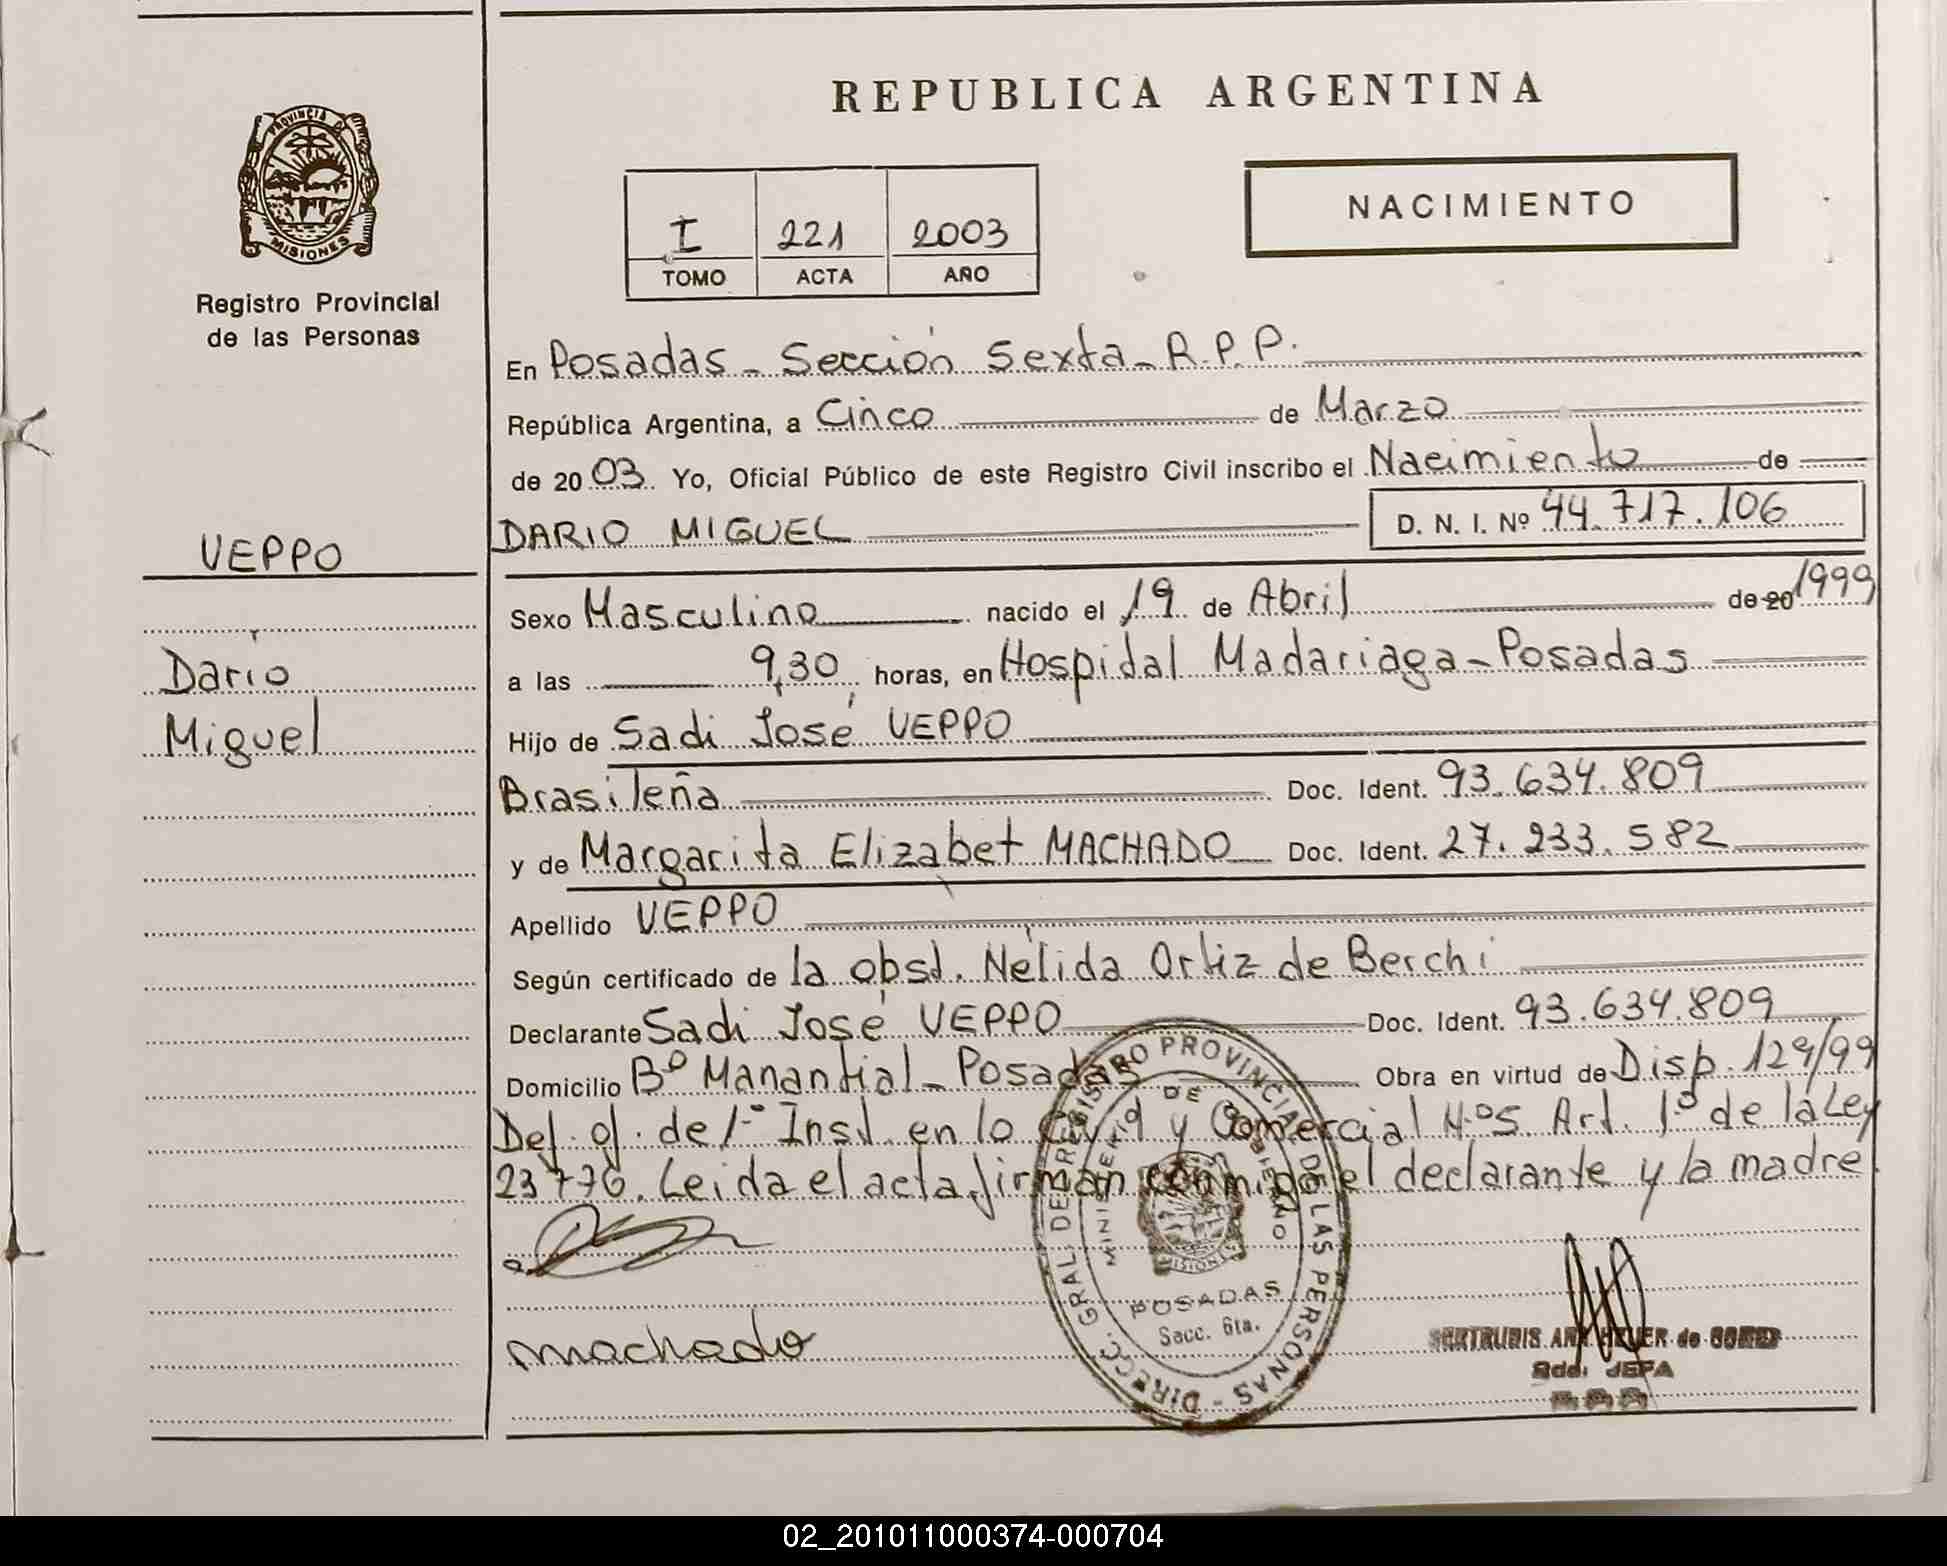 REPUBLICA ARGENTINA
PROVINCIA DE
MISIONES
Registro Provincial
de las Personas
I 221 2003
TOMO ACTA AÑO
NACIMIENTO
En Posadas - Sección Sexta - R.P.P.
República Argentina, a Cinco de Marzo
de 2003. Yo, Oficial Público de este Registro Civil inscribo el Nacimiento de
VEPPO
Dario
Miguel
DARIO MIGUEL D. N. I. Nº 44.717.106
Sexo Masculino nacido el 19 de Abril de 20 1999
a las 9,30 horas, en Hospidal Madariaga - Posadas
Hijo de Sadi José VEPPO
Brasileña Doc. Ident. 93.634.809
y de Margarita Elizabet MACHADO Doc. Ident. 27.233.582
Apellido VEPPO
Según certificado de la obst. Nélida Ortiz de Berchi
Declarante Sadi José VEPPO Doc. Ident. 93.634.809
Domicilio Bº Manantial - Posadas Obra en virtud de Disp. 129/99
Def. of. de 1º Inst. en lo Civil y Comercial Nº5 Art. 1º de la Ley
23776. Leida el acta firman conmigo el declarante y la madre.
machado
DIRECC. GRAL. DE REGISTRO PROVINCIAL DE LAS PERSONAS -
MINISTERIO DE GOBIERNO
MISIONES
POSADAS
Secc. 6ta.
JEFA
02_201011000374-000704